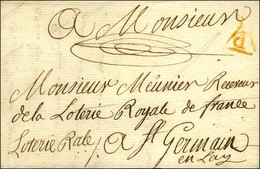 A Monsieur
Monsieur Meunier Receveur
de la Loterie Royale de france
Loterie Rale / A St Germain
en Lay